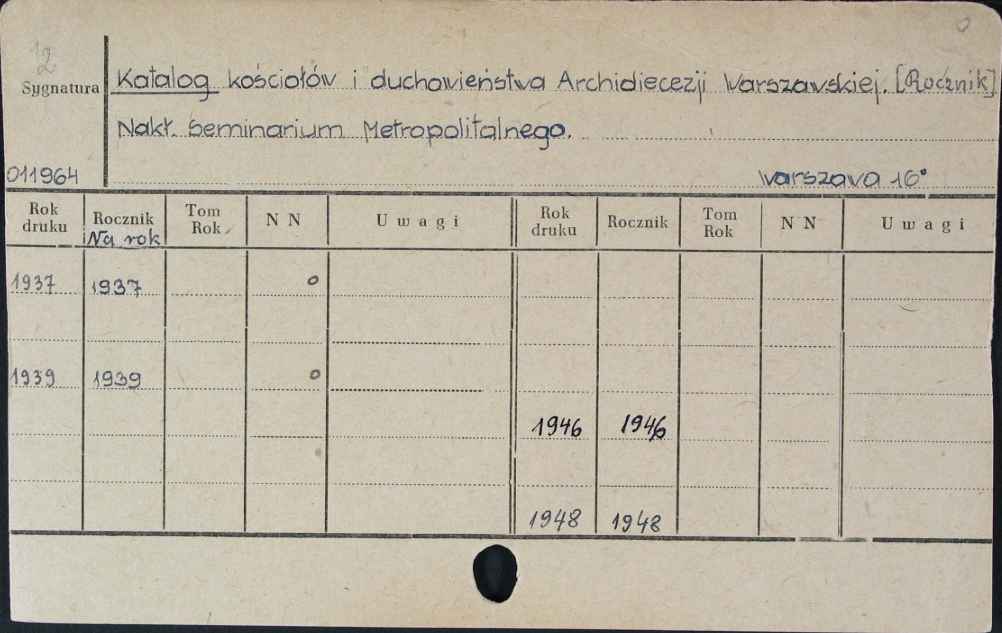 12 0
Sygnatura Katalog kościołów i duchowieństwa Archidiecezji Warszawskiej. [Rocznik]
Nakł. Seminarium Metropolitalnego.
011964 Warszawa 16°
Rok druku Rocznik Na rok Tom Rok N N Uwagi Rok druku Rocznik Tom Rok N N Uwagi
1937 1937 0
1939 1939 0
1946 1946
1948 1948